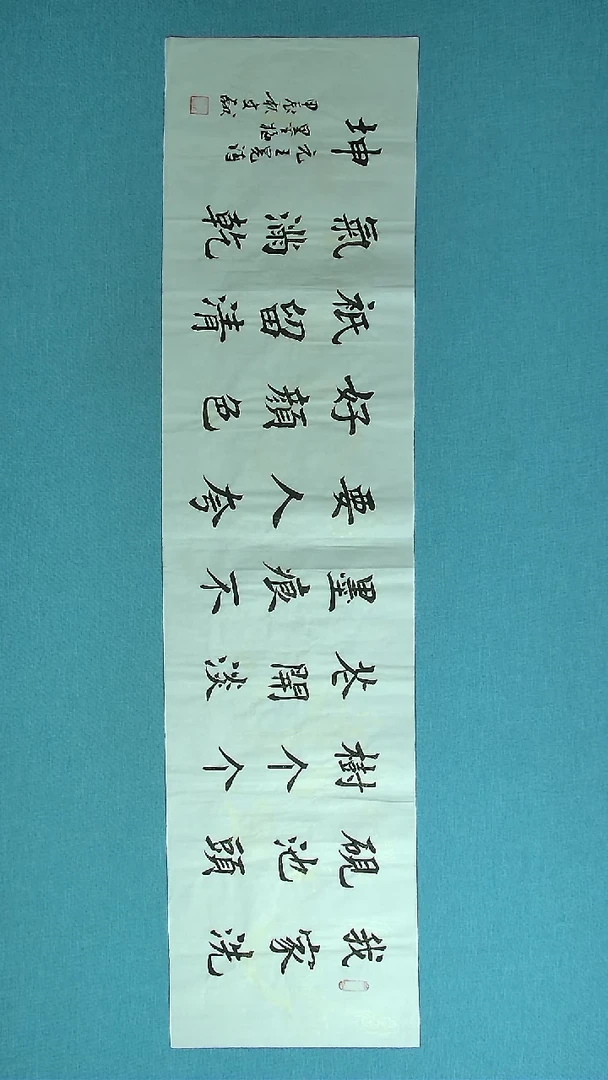 我家洗
硯池頭
樹个个
花開淡
墨痕不
要人夸
好顏色
祇留清
氣滿乾
坤
元王冕詩
墨梅
甲辰秋